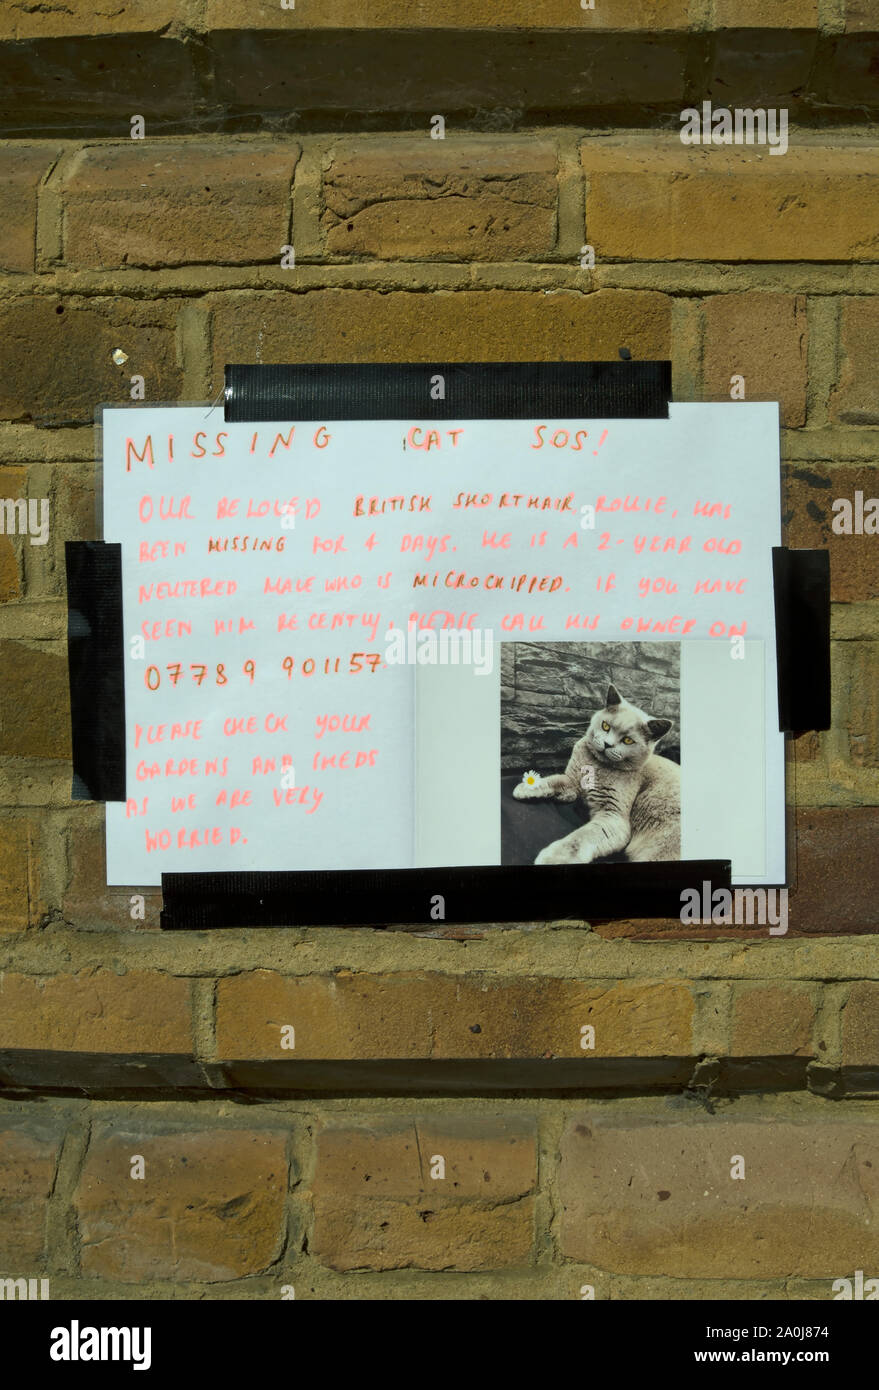 MISSING CAT SOS!
OUR BELOVED BRITISH SHORTHAIR ROLLIE, HAS
BEEN MISSING FOR 4 DAYS. HE IS A 2-YEAR OLD
NEUTERED MALE WHO IS MICROCHIPPED. IF YOU HAVE
SEEN HIM RECENTLY, PLEASE CALL HIS OWNER ON
07789 901157.
PLEASE CHECK YOUR
GARDENS AND SHEDS
AS WE ARE VERY
WORRIED.
a alamy stock photo
alamy
Image ID: 2A0J874
www.alamy.com